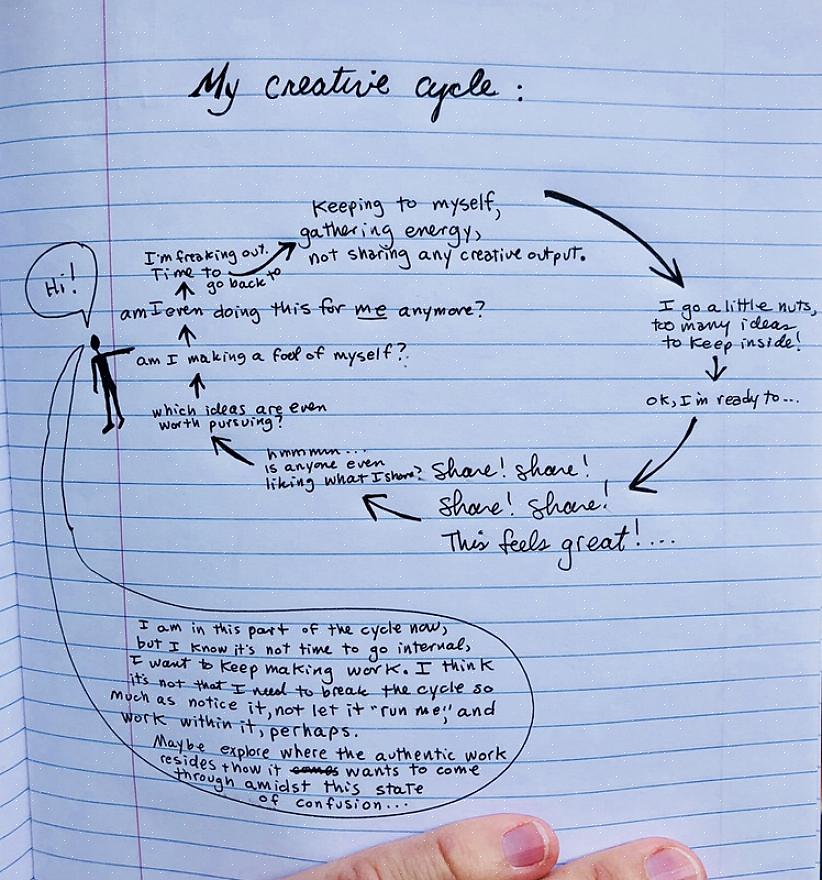 My creative cycle:
Keeping to myself,
gathering energy,
not sharing any creative output.
I go a little nuts,
too many ideas
to keep inside!
ok, I'm ready to...
Share! share!
Share! share!
This feels great!...
hmmmm...
is anyone even
liking what I share?
which ideas are even
worth pursuing?
am I making a fool of myself?
am I even doing this for me anymore?
I'm freaking out.
Time to
go back to
Hi!
I am in this part of the cycle now,
but I know it's not time to go internal,
I want to keep making work. I think
it's not that I need to break the cycle so
much as notice it, not let it "run me," and
work within it, perhaps.
Maybe explore where the authentic work
resides + how it comes wants to come
through amidst this state
of confusion...